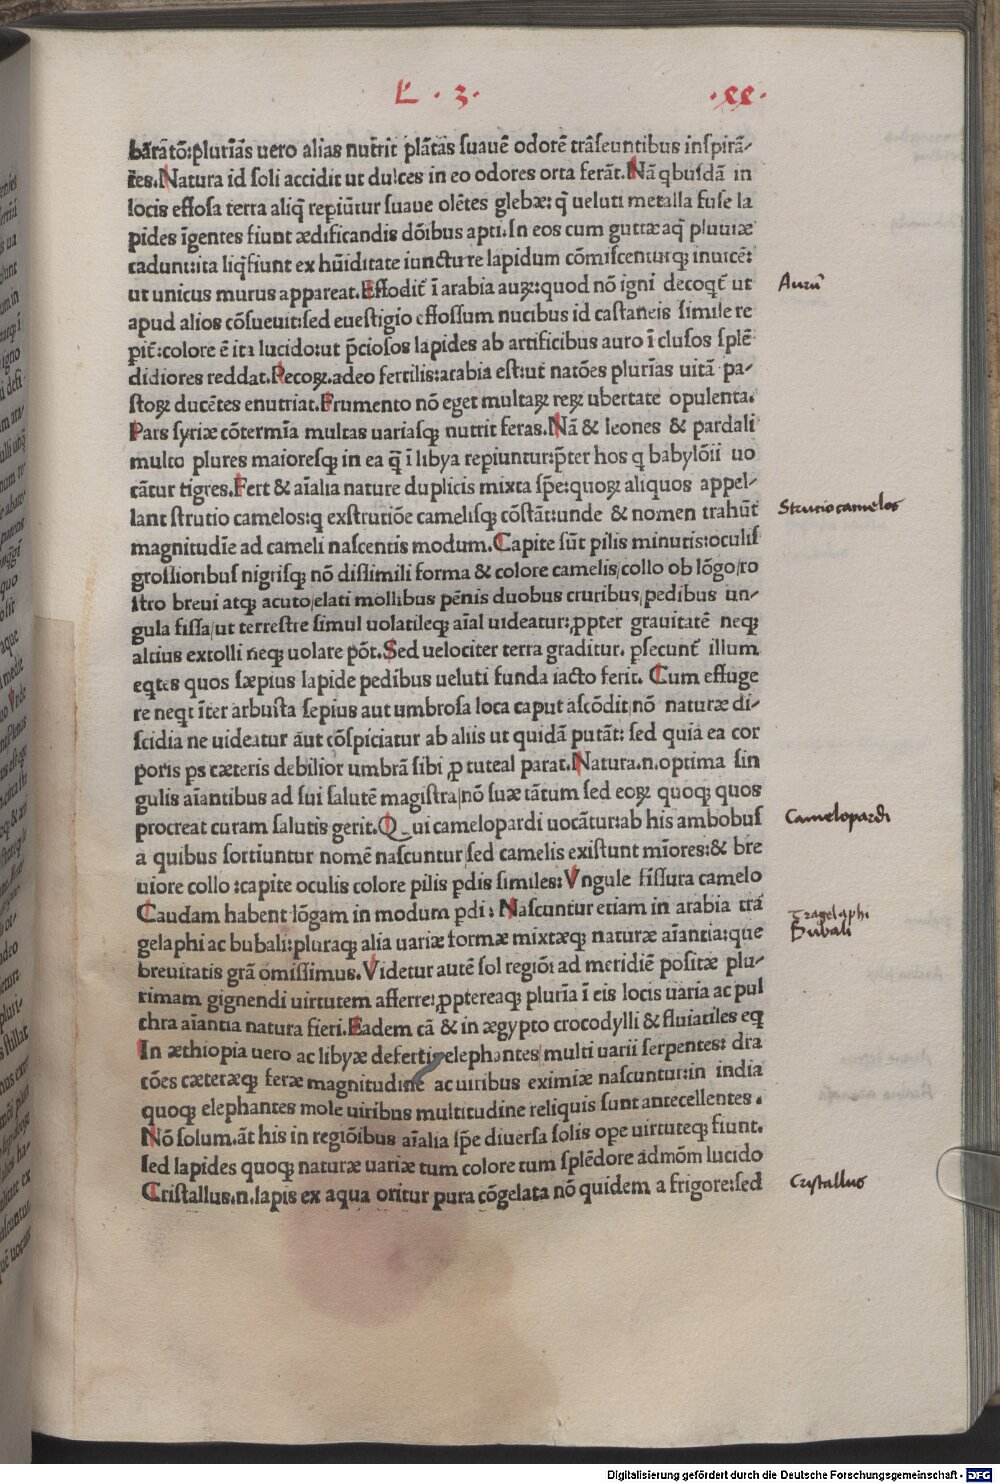 L . 3 .
. xx .
barãtõ:plurĩãs uero alias nutrit plãtas suauẽ odorẽ trãseuntibus inspirã-
tes. Natura id soli accidit ut dulces in eo odores orta ferãt. Nã qbusdã in
locis effosa terra aliq̃ repiũtur suaue olẽtes glebæ: q̃ ueluti metalla fuse la
pides ĩgentes fiunt ædificandis dõibus apti. In eos cum guttæ aq̃ pluuiæ
cadunt:ita liq̃fiunt ex hũiditate iuncture lapidum cõmiscenturq; inuicẽ:
ut unicus murus appareat. Effodit̃ ĩ arabia auꝝ:quod nõ igni decoqt̃ ut
Aurũ
apud alios cõsueuit:sed euestigio effossum nucibus id castaneis simile re
pit̃:colore ẽ ita lucido:ut p̃ciosos lapides ab artificibus auro ĩclusos splẽ
didiores reddat. Pecoꝝ.adeo fertilis:arabia est:ut natões plurĩas uitã pa-
stoꝝ ducẽtes enutriat. Frumento nõ eget multaꝝ reꝝ ubertate opulenta.
Pars syriæ cõtermĩa multas uariasq; nutrit feras. Nã & leones & pardali
multo plures maioresq; in ea q̃ ĩ libya repiuntur:p̃ter hos q babylõii uo
cãtur tigres. Fert & aĩalia nature duplicis mixta sp̃e:quoꝝ aliquos appel-
lant strutio camelos:q exstrutiõe camelisq; cõstãt:unde & nomen trahũt
Strutiocamelos
magnitudĩe ad cameli nascentis modum. Capite sũt pilis minutis:oculis
grossioribus nigrisq; nõ dissimili forma & colore camelis/collo ob lõgo/ro
stro breui atq; acuto/elati mollibus pẽnis duobus cruribus/pedibus un-
gula fissa/ut terrestre simul uolatileq; aĩal uideatur:ꝓpter grauitatẽ neq;
altius extolli neq; uolare põt. Sed uelociter terra graditur. ꝑsecunt̃ illum
eqtes quos sæpius lapide pedibus ueluti funda iacto ferit. Cum effuge
re neqt ĩter arbusta sepius aut umbrosa loca caput ascõdit:nõ naturæ di-
scidia ne uideatur aut cõspiciatur ab aliis ut quidã putãt: sed quia ea cor
poris ps cæteris debilior umbrã sibi ꝓ tuteal parat. Natura.n.optima sin
gulis aĩantibus ad sui salutẽ magistra/nõ suæ tãtum sed eoꝝ quoq; quos
procreat curam salutis gerit. Qui camelopardi uocãtur:ab his ambobus
Camelopardi
a quibus sortiuntur nomẽ nascuntur/sed camelis existunt mĩores:& bre
uiore collo :capite oculis colore pilis pdis similes: Vngule fissura camelo
Caudam habent lõgam in modum pdi : Nascuntur etiam in arabia tra
Tragelaphi
gelaphi ac bubali:pluraq; alia uariæ formæ mixtæq; naturæ aĩantia:que
Bubali
breuitatis grã omisimus. Videtur autẽ sol regiõi ad meridiẽ positæ plu-
rimam gignendi uirtutem afferre:ꝓptereaq; plurĩa ĩ eis locis uaria ac pul
chra aĩantia natura fieri. Eadem cã & in ægypto crocodylli & fluiatiles eq
In æthiopia uero ac libyæ desertis elephantes/multi uarii serpentes: dra
cões cæteræq; feræ magnitudine ac uiribus eximiæ nascuntur:in india
quoq; elephantes mole uiribus multitudine reliquis sunt antecellentes.
Nõ solum.ãt his in regiõibus aĩalia sp̃e diuersa solis ope uirtuteq; fiunt.
sed lapides quoq; naturæ uariæ tum colore tum splẽdore admõm lucido
Cristallus.n.lapis ex aqua oritur pura cõgelata nõ quidem a frigore:sed
Crystallus
Digitalisierung gefördert durch die Deutsche Forschungsgemeinschaft - DFG